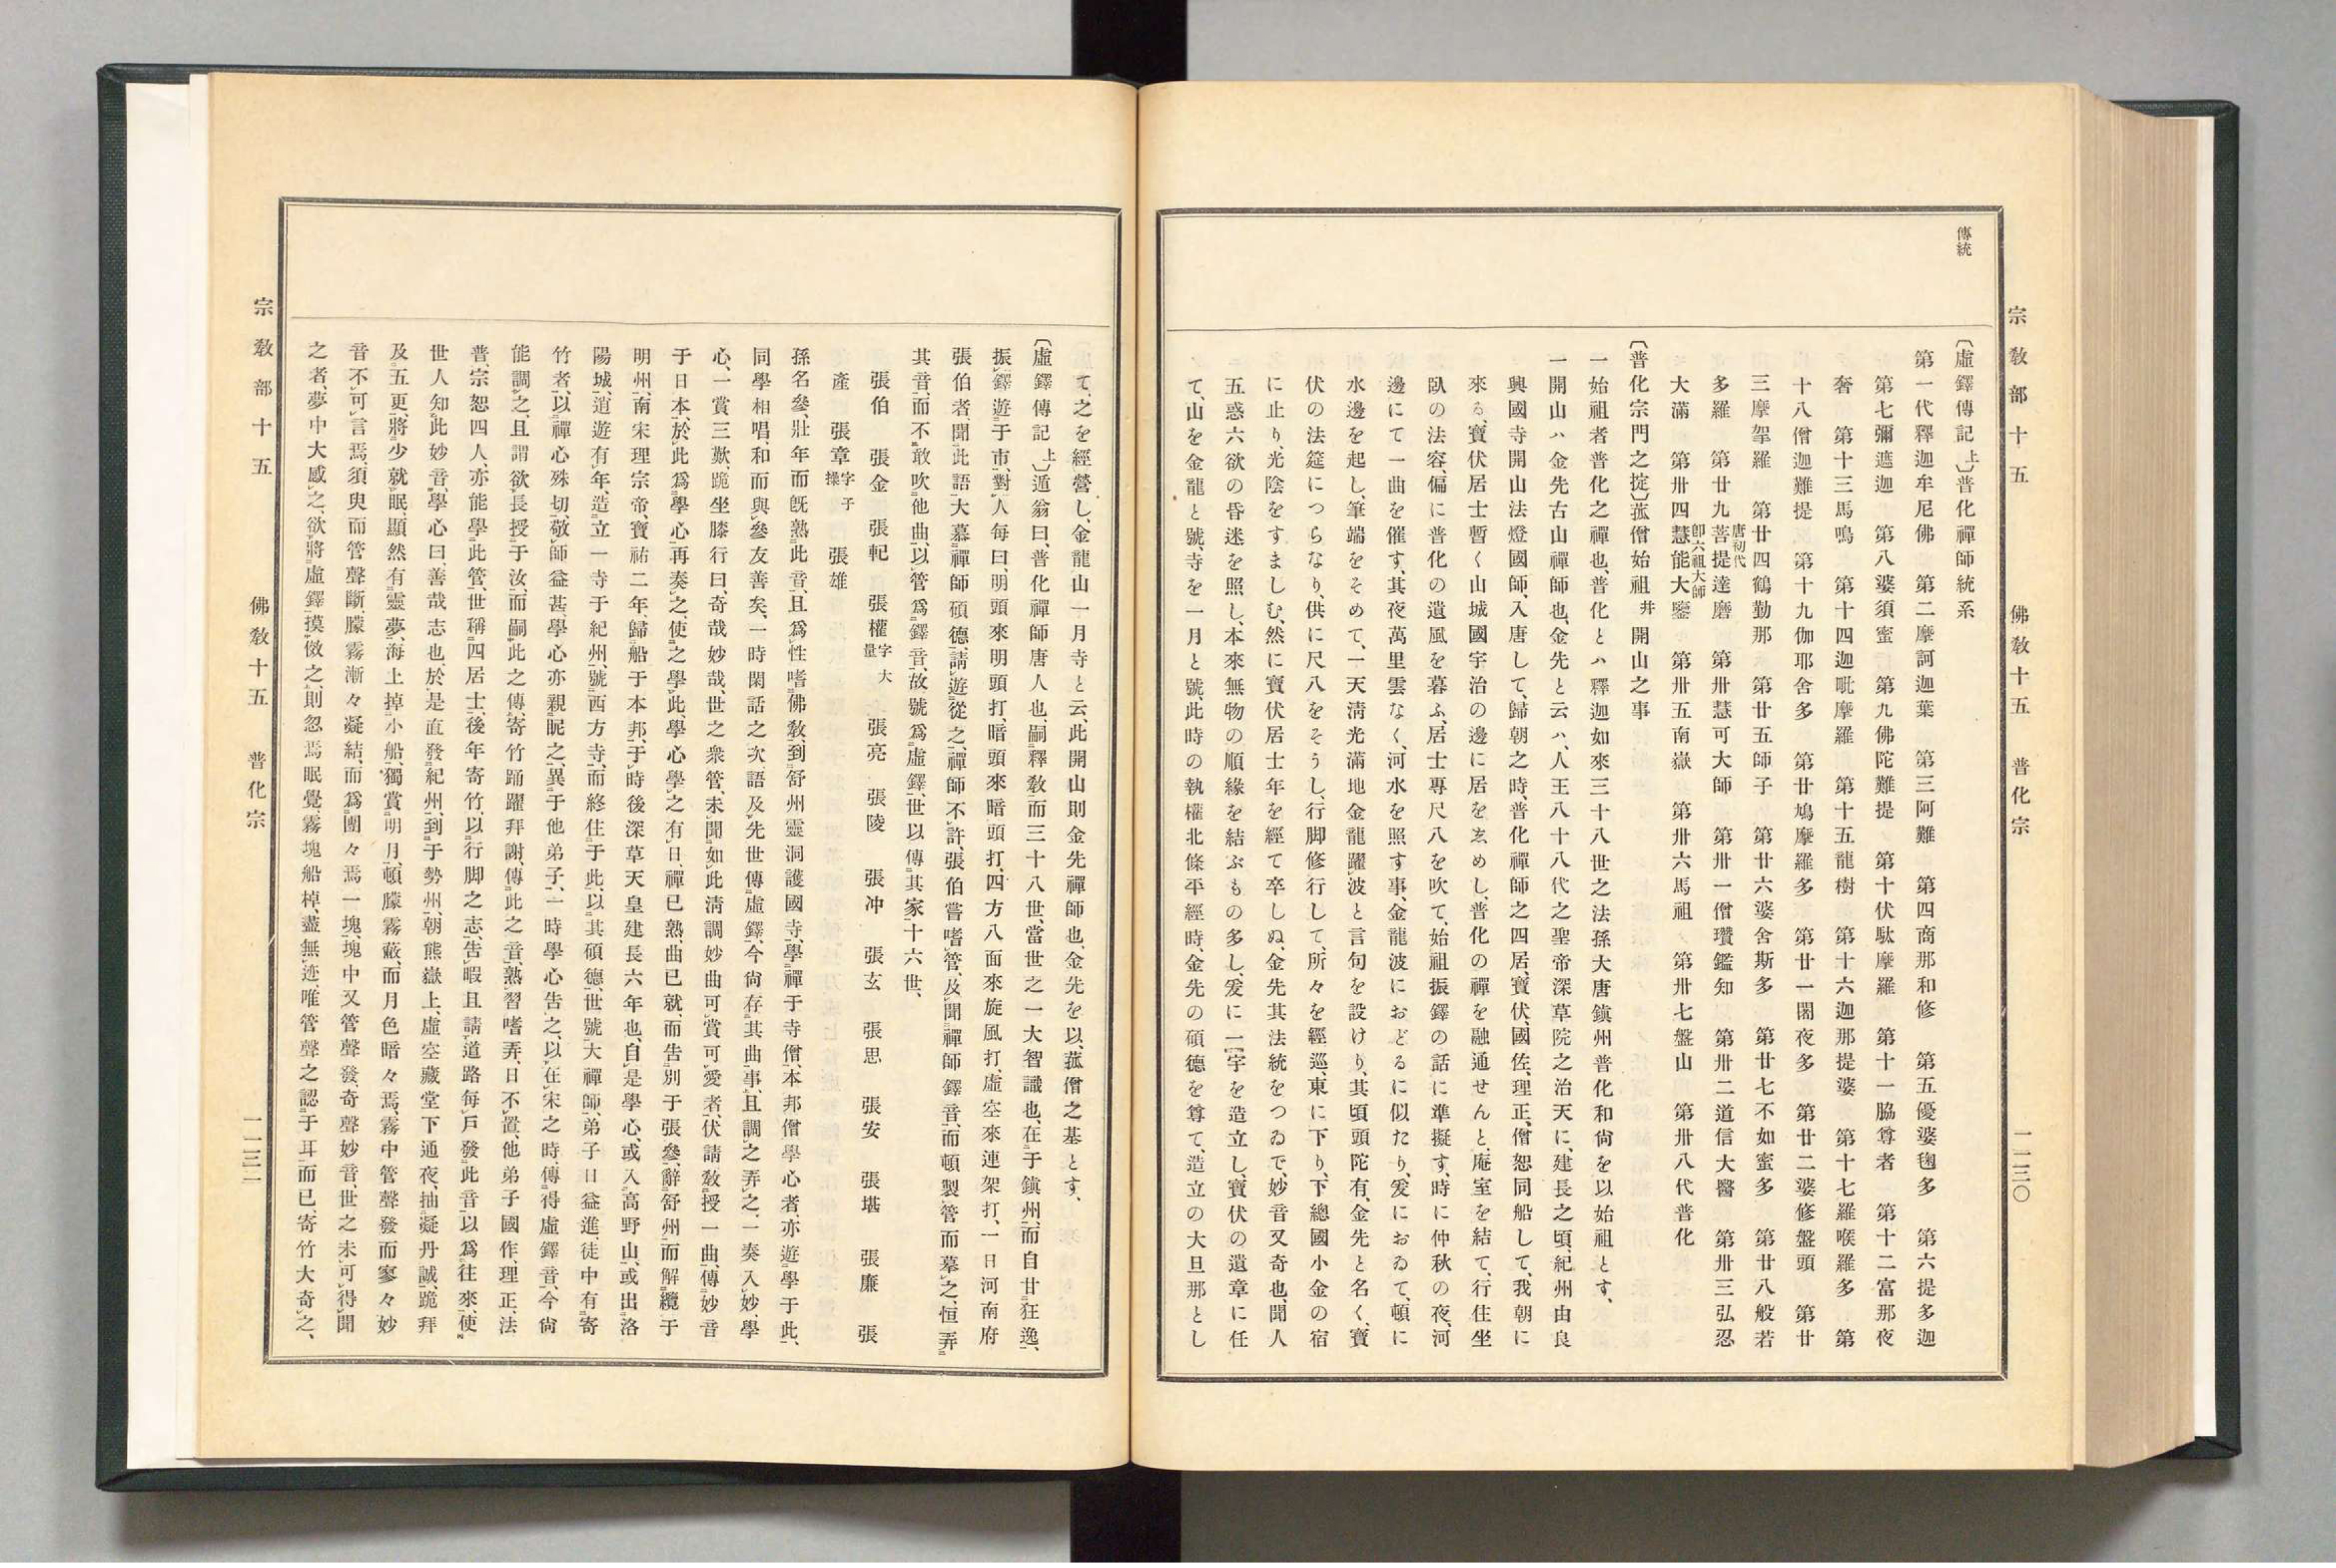 宗敎部十五　佛敎十五　普化宗　一一三〇
傳統
〔虛鐸傳記上〕普化禪師統系
第一代釋迦牟尼佛　第二摩訶迦葉　第三阿難　第四商那和修　第五優婆毱多　第六提多迦
第七彌遮迦　第八婆須蜜　第九佛陀難提　第十伏馱摩羅　第十一脇尊者　第十二富那夜
奢　第十三馬鳴　第十四迦毗摩羅　第十五龍樹　第十六迦那提婆　第十七羅喉羅多　第
十八僧迦難提　第十九伽耶舍多　第廿鳩摩羅多　第廿一闍夜多　第廿二婆修盤頭　第廿
三摩拏羅　第廿四鶴勤那　第廿五師子　第廿六婆舍斯多　第廿七不如蜜多　第廿八般若
多羅　第廿九菩提達磨唐初代　第卅慧可大師　第卅一僧瓚鑑知　第卅二道信大醫　第卅三弘忍
大滿　第卅四慧能大鑒卽六祖大師　第卅五南嶽　第卅六馬祖　第卅七盤山　第卅八代普化
〔普化宗門之掟〕菰僧始祖幷開山之事
一始祖者普化之禪也、普化とハ釋迦如來三十八世之法孫大唐鎭州普化和尙を以始祖とす、
一開山ハ金先古山禪師也、金先と云ハ、人王八十八代之聖帝深草院之治天に、建長之頃、紀州由良
興國寺開山法燈國師、入唐して、歸朝之時、普化禪師之四居、寶伏、國佐、理正、僧恕同船して、我朝に
來る、寶伏居士暫く山城國宇治の邊に居をゑめし、普化の禪を融通せんと、庵室を結て、行住坐
臥の法容、偏に普化の遺風を暮ふ、居士專尺八を吹て、始祖振鐸の話に準擬す、時に仲秋の夜、河
邊にて一曲を催す、其夜萬里雲なく、河水を照す事、金龍波におどるに似たり、爰におゐて、頓に
水邊を起し、筆端をそめて、一天淸光滿地金龍躍波と言句を設けり、其頃頭陀有、金先と名く、寶
伏の法筵につらなり、供に尺八をそうし、行脚修行して、所々を經巡、東に下り、下總國小金の宿
に止り、光陰をすましむ、然に寶伏居士年を經て卒しぬ、金先其法統をつゐで、妙音又奇也、聞人
五惑六欲の昏迷を照し、本來無物の順緣を結ぶもの多し、爰に一宇を造立し、寶伏の遺章に任
て、山を金龍と號、寺を一月と號、此時の執權北條平經時、金先の碩德を尊て、造立の大旦那とし
て、之を經營し、金龍山一月寺と云、此開山則金先禪師也、金先を以、菰僧之基とす、
〔虛鐸傳記上〕遁翁曰、普化禪師唐人也、嗣釋敎而三十八世、當世之一大智識也、在于鎭州、而自甘狂逸、
振鐸遊于市、對人每曰、明頭來明頭打、暗頭來暗頭打、四方八面來旋風打、虛空來連架打、一日河南府
張伯者、聞此語、大慕禪師碩德、請遊從之、禪師不許、張伯嘗嗜管、及聞禪師鐸音、而頓製管而摹之、恒弄
其音、而不敢吹他曲、以管爲鐸音、故號爲虛鐸、世以傳其家十六世、
張伯　張金　張軺　張權字大量　張亮　張陵　張冲　張玄　張思　張安　張堪　張廉　張
產　張章字子操　張雄
孫名參、壯年而旣熟此音、且爲性嗜佛敎、到舒州靈洞護國寺、學禪于寺僧、本邦僧學心者、亦遊學于此、
同學相唱、和而與參友善矣、一時閑話之次、語及先世傳虛鐸、今尙存其曲事、且調之弄之、一奏入妙、學
心、一賞三歎、跪坐膝行曰、奇哉妙哉、世之衆管、未聞如此淸調妙曲可賞可愛者、伏請敎授一曲、傳妙音
于日本、於此爲學心再奏之、使之學此、學心學之有日、禪已熟、曲已就、而告別于張參、辭舒州而解纜于
明州、南宋理宗帝、寶祐二年歸船于本邦、于時後深草天皇建長六年也、自是學心、或入高野山、或出洛
陽城、道遊有年、造立一寺于紀州、號西方寺、而終住于此、以其碩德、世號大禪師、弟子日益進徒中有寄
竹者、以禪心殊切、敬師益甚、學心亦親昵之、異于他弟子、一時學心告之、以在宋之時、傳得虛鐸音、今尙
能調之、且謂欲長授于汝、而嗣此之傳、寄竹踊躍拜謝、傳此之音、熟習嗜弄、日不置、他弟子國作、理正、法
普、宗恕四人、亦能學此管、世稱四居士、後年寄竹、以行脚之志、吿暇且請道路每戶發此音、以爲往來、使
世人知此妙音、學心曰、善哉志也於是直發紀州、到于勢州、朝熊嶽上、虛空藏堂下通夜、抽凝丹誠、跪拜
及五更、將少就眠、顯然有靈夢、海上掉小船、獨賞明月、頓朦霧蔽、而月色暗々焉、霧中管聲發而寥々妙
音不可言焉、須臾而管聲斷、朦霧漸々凝結、而爲團々焉一塊、塊中又管聲發、奇聲妙音、世之未可得聞
之者、夢中大感之、欲將虛鐸摸倣之、則忽焉眠覺、霧塊船棹、盡無迹、唯管聲之認于耳而已、寄竹大奇之、
宗敎部十五　佛敎十五　普化宗　一一三一